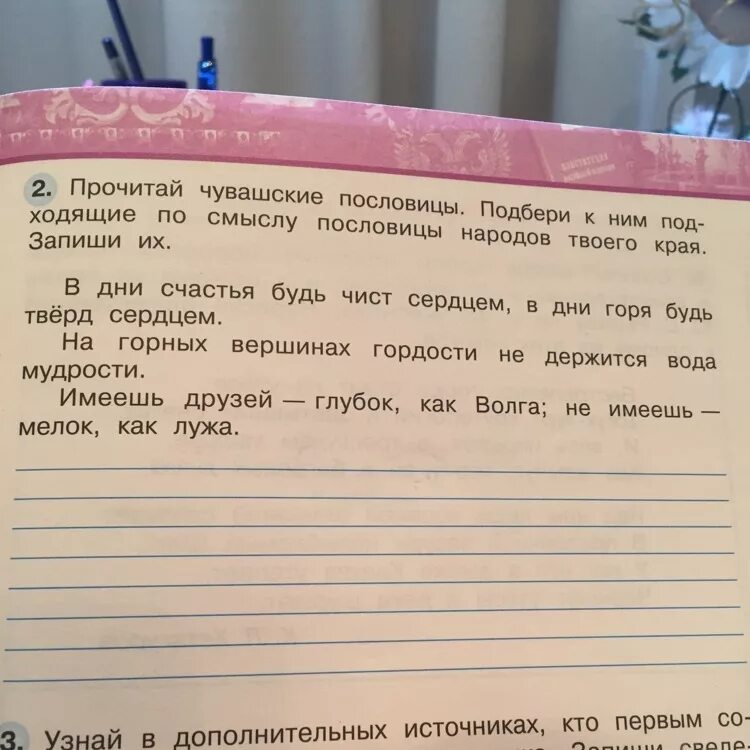 2. Прочитай чувашские пословицы. Подбери к ним под-
ходящие по смыслу пословицы народов твоего края.
Запиши их.
В дни счастья будь чист сердцем, в дни горя будь
твёрд сердцем.
На горных вершинах гордости не держится вода
мудрости.
Имеешь друзей — глубок, как Волга; не имеешь —
мелок, как лужа.
3. Узнай в дополнительных источниках, кто первым со-
Запиши сведе-